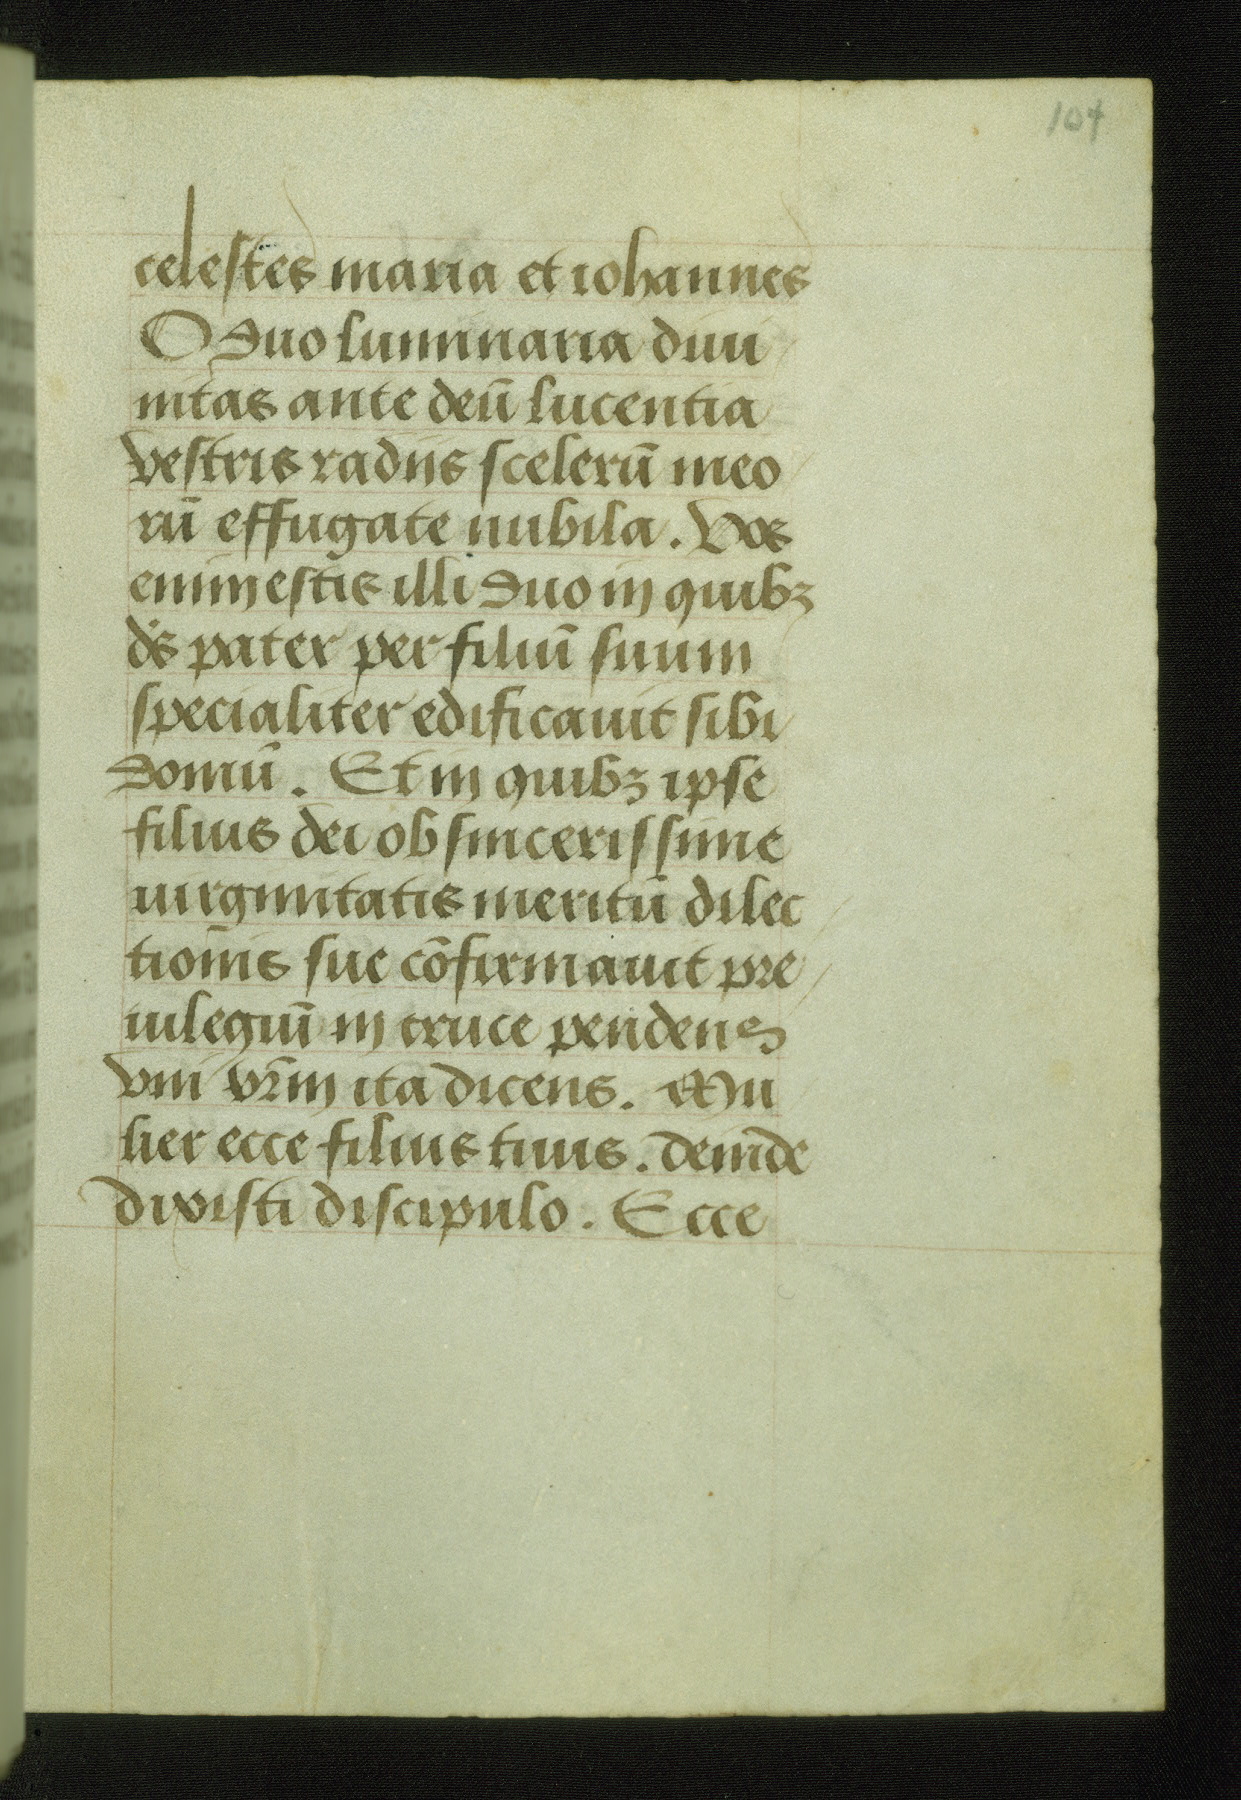 104
celestes maria et iohannes
O duo luminaria diui
nitas ante deū lucentia
vestris radiis scelerū meo
rū effugate nubila. Vos
enim estis illi duo in quibꝫ
ds̄ pater per filiū suum
specialiter edificauit sibi
domū. Et in quibꝫ ipse
filius dei ob sincerissime
uirginitatis meritū dilec
tionis sue cōfirmauit pre
uilegiū in cruce pendens
vni vr̄m ita dicens. Mu
lier ecce filius tuus. deinde
dixisti discipulo. Ecce